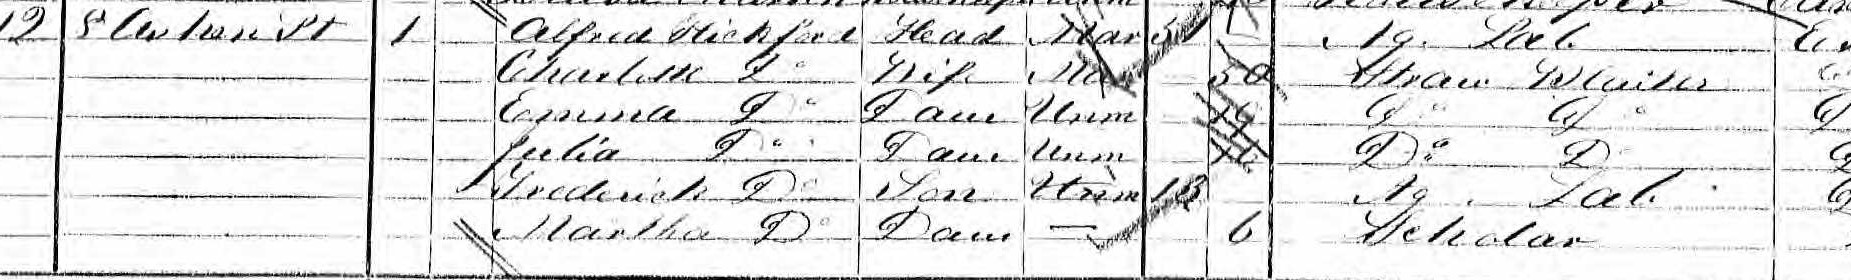 12 St 1 Alfred Hickford Head Mar Ag. Lab
Charlotte Do Wife Mar 50 Straw Plaiter
Emma Do Daur Unm 19 Do Do
Julia Do Daur Unm 16 Do Do
Frederick Do Son Unm 13 Ag. Lab
Martha Do Daur — 6 Scholar